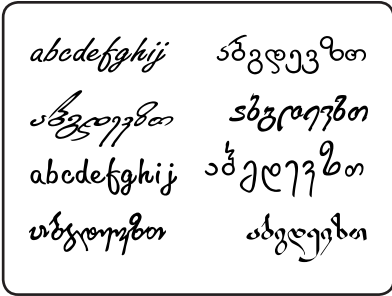 abcdefghij აბგდევზთ
აბგდევზთ აბგდევზთ
abcdefghij აბგდევზთ
აბგდევზთ აბგდევზთ